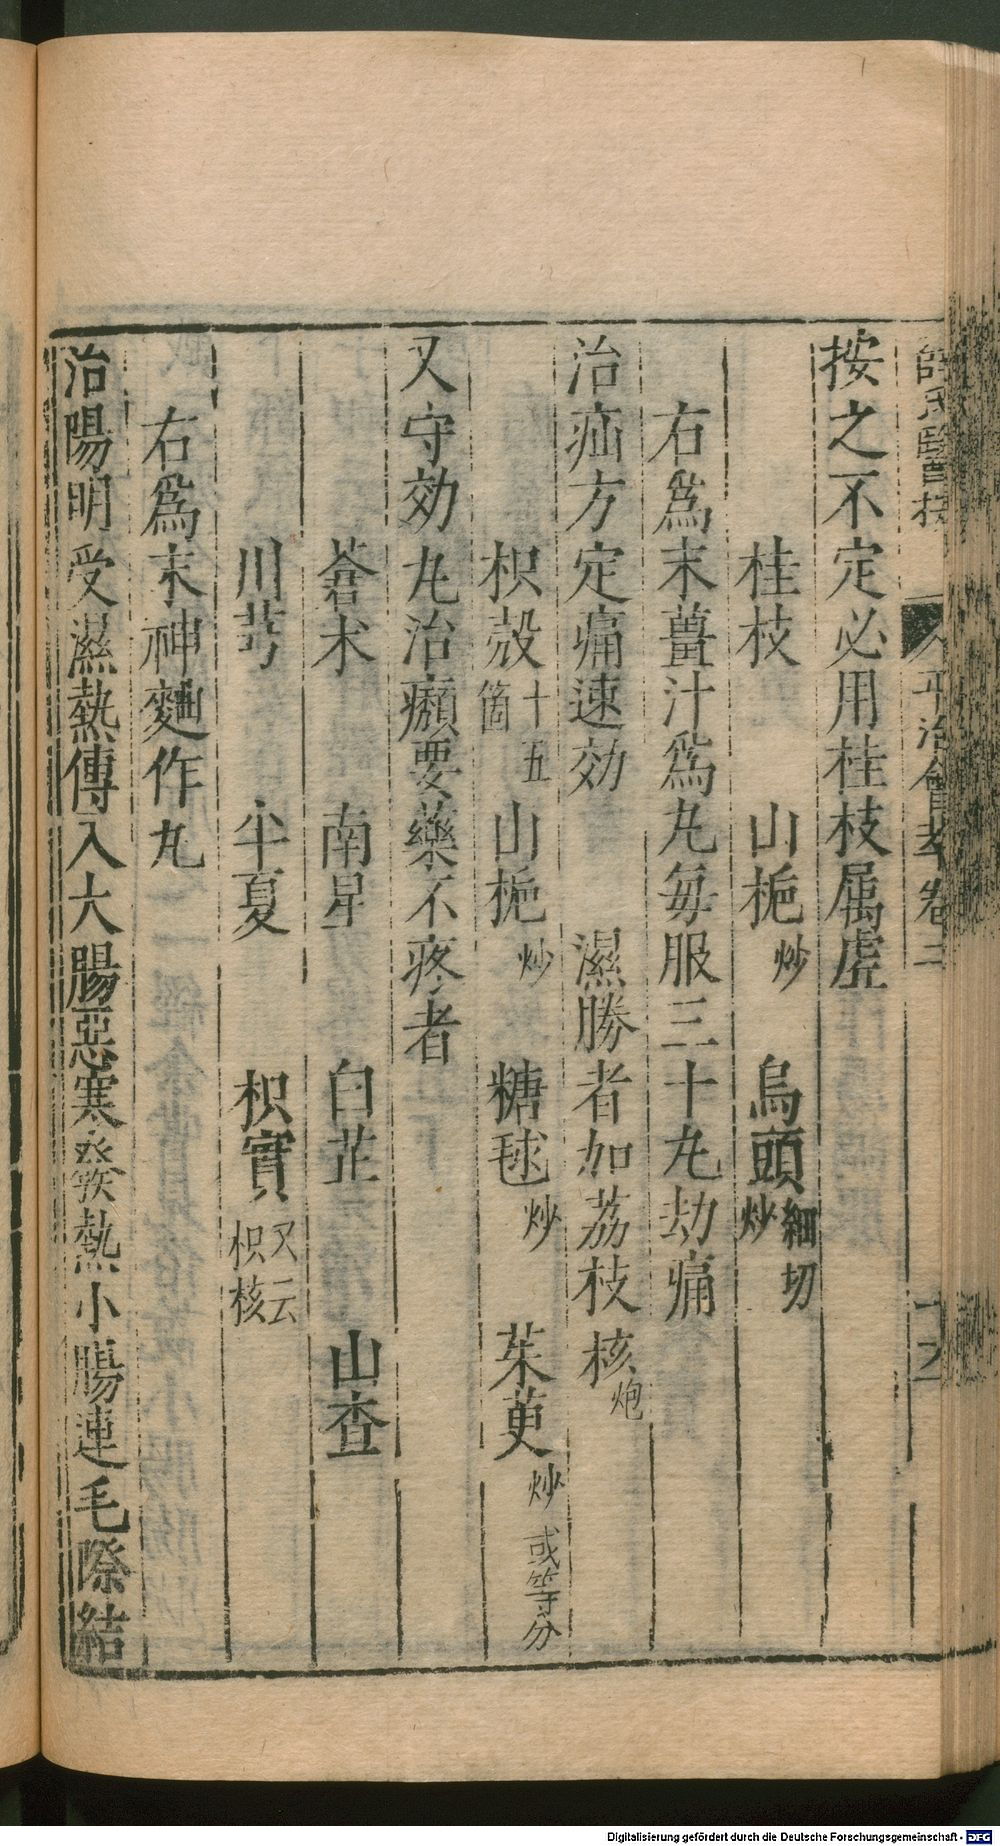 薛氏醫按 平治會萃卷三 十六
按之不定必用桂枝屬虛
桂枝 山梔炒 烏頭細切炒
右爲末薑汁爲丸每服三十丸劫痛
治疝方定痛速効 濕勝者加荔枝核炮
枳殼十五箇 山梔炒 糖毬炒 茱萸炒 或等分
又守効丸治㿗要藥不疼者
蒼朮 南星 白芷 山查
川芎 半夏 枳實又云枳核
右爲末神麯作丸
治陽明受濕熱傳入大腸惡寒發熱小腸連毛際結
Digitalisierung gefördert durch die Deutsche Forschungsgemeinschaft - DFG